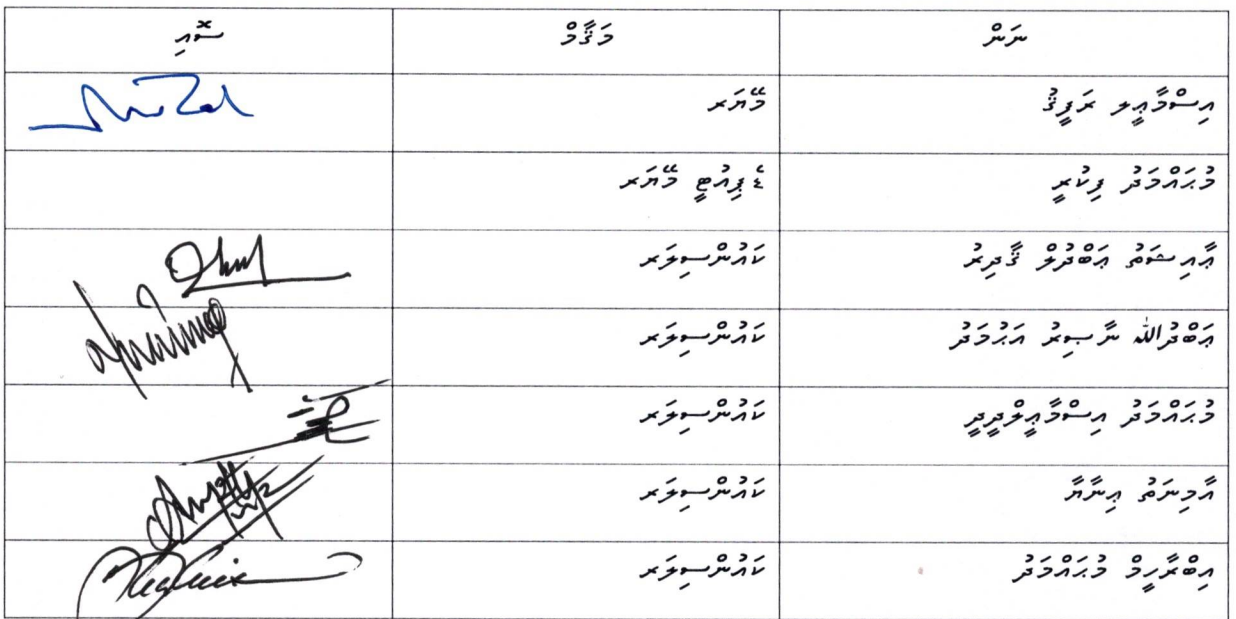 ނަން މަޤާމް ސޮއި
އިސްމާޢީލް ރަފީޤު މޭޔަރ
މުޙައްމަދު ފިކުރީ ޑެޕިއުޓީ މޭޔަރ
ޢާއިޝަތު ޢަބްދުލް ޤާދިރު ކައުންސިލަރ
ޢަބްދުﷲ ނާޞިރު އަޙުމަދު ކައުންސިލަރ
މުޙައްމަދު އިސްމާޢީލްދީދީ ކައުންސިލަރ
އާމިނަތު ޢިނާޔާ ކައުންސިލަރ
އިބްރާހީމް މުޙައްމަދު ކައުންސިލަރ